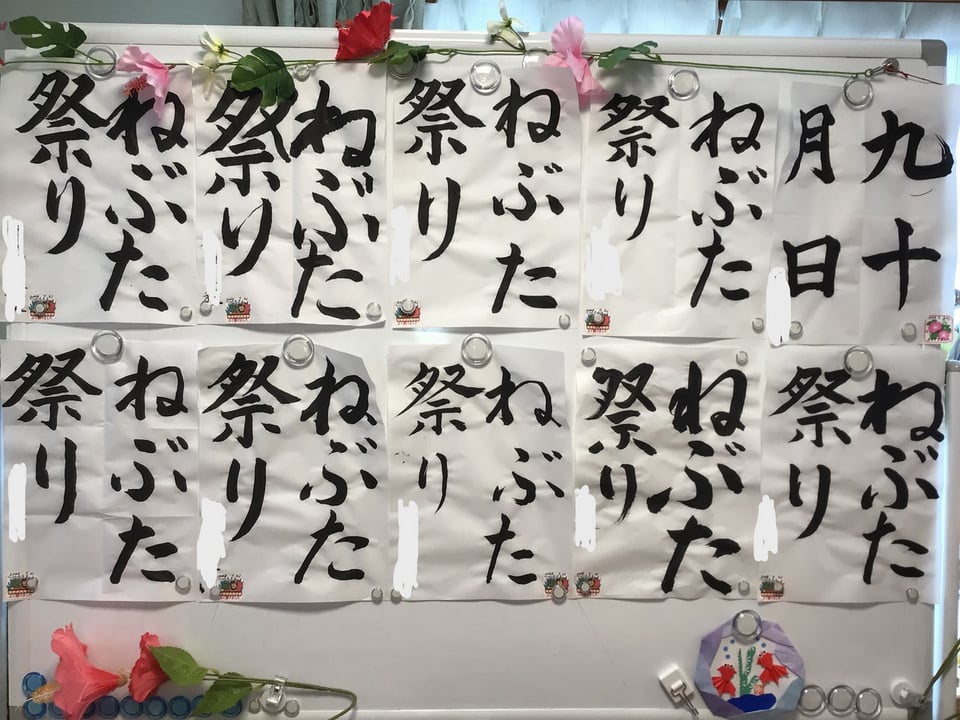 九月
十日
ねぶた
祭り
ねぶた
祭り
ねぶた
祭り
ねぶた
祭り
ねぶた
祭り
ねぶた
祭り
ねぶた
祭り
ねぶた
祭り
ねぶた
祭り